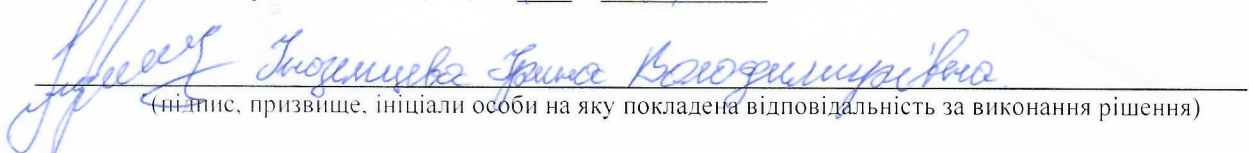 Іноземцева Ірина Володимирівна
(підпис, призвище, ініціали особи на яку покладена відповідальність за виконання рішення)